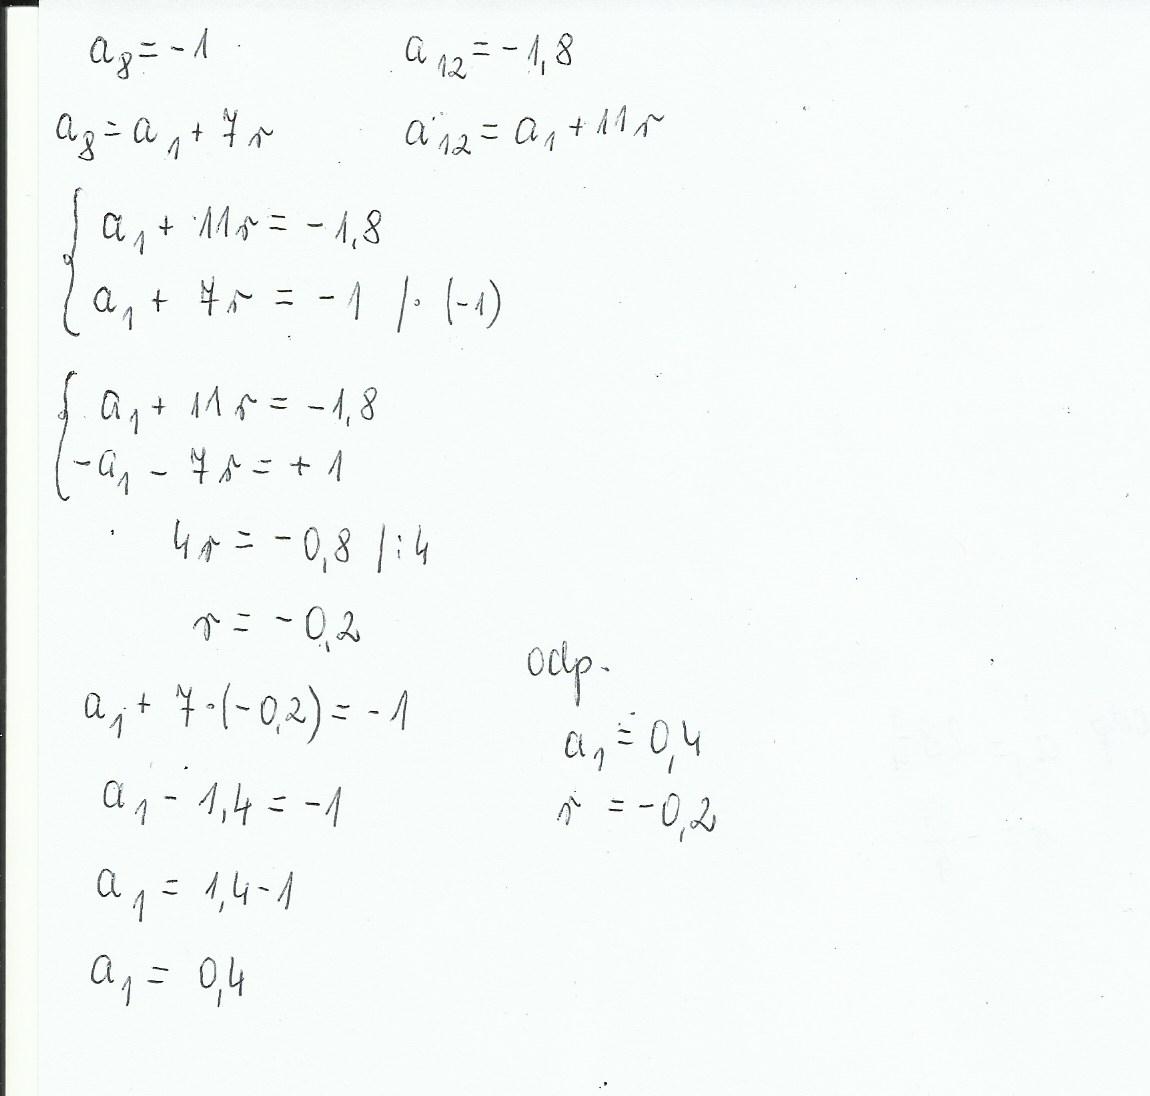 a₈ = -1    a₁₂ = -1,8
a₈ = a₁ + 7r    a₁₂ = a₁ + 11r
a₁ + 11r = -1,8
a₁ + 7r = -1 /· (-1)
a₁ + 11r = -1,8
-a₁ - 7r = + 1
4r = -0,8 /:4
r = -0,2
a₁ + 7·(-0,2) = -1
a₁ - 1,4 = -1
a₁ = 1,4-1
a₁ = 0,4
odp.
a₁ = 0,4
r = -0,2